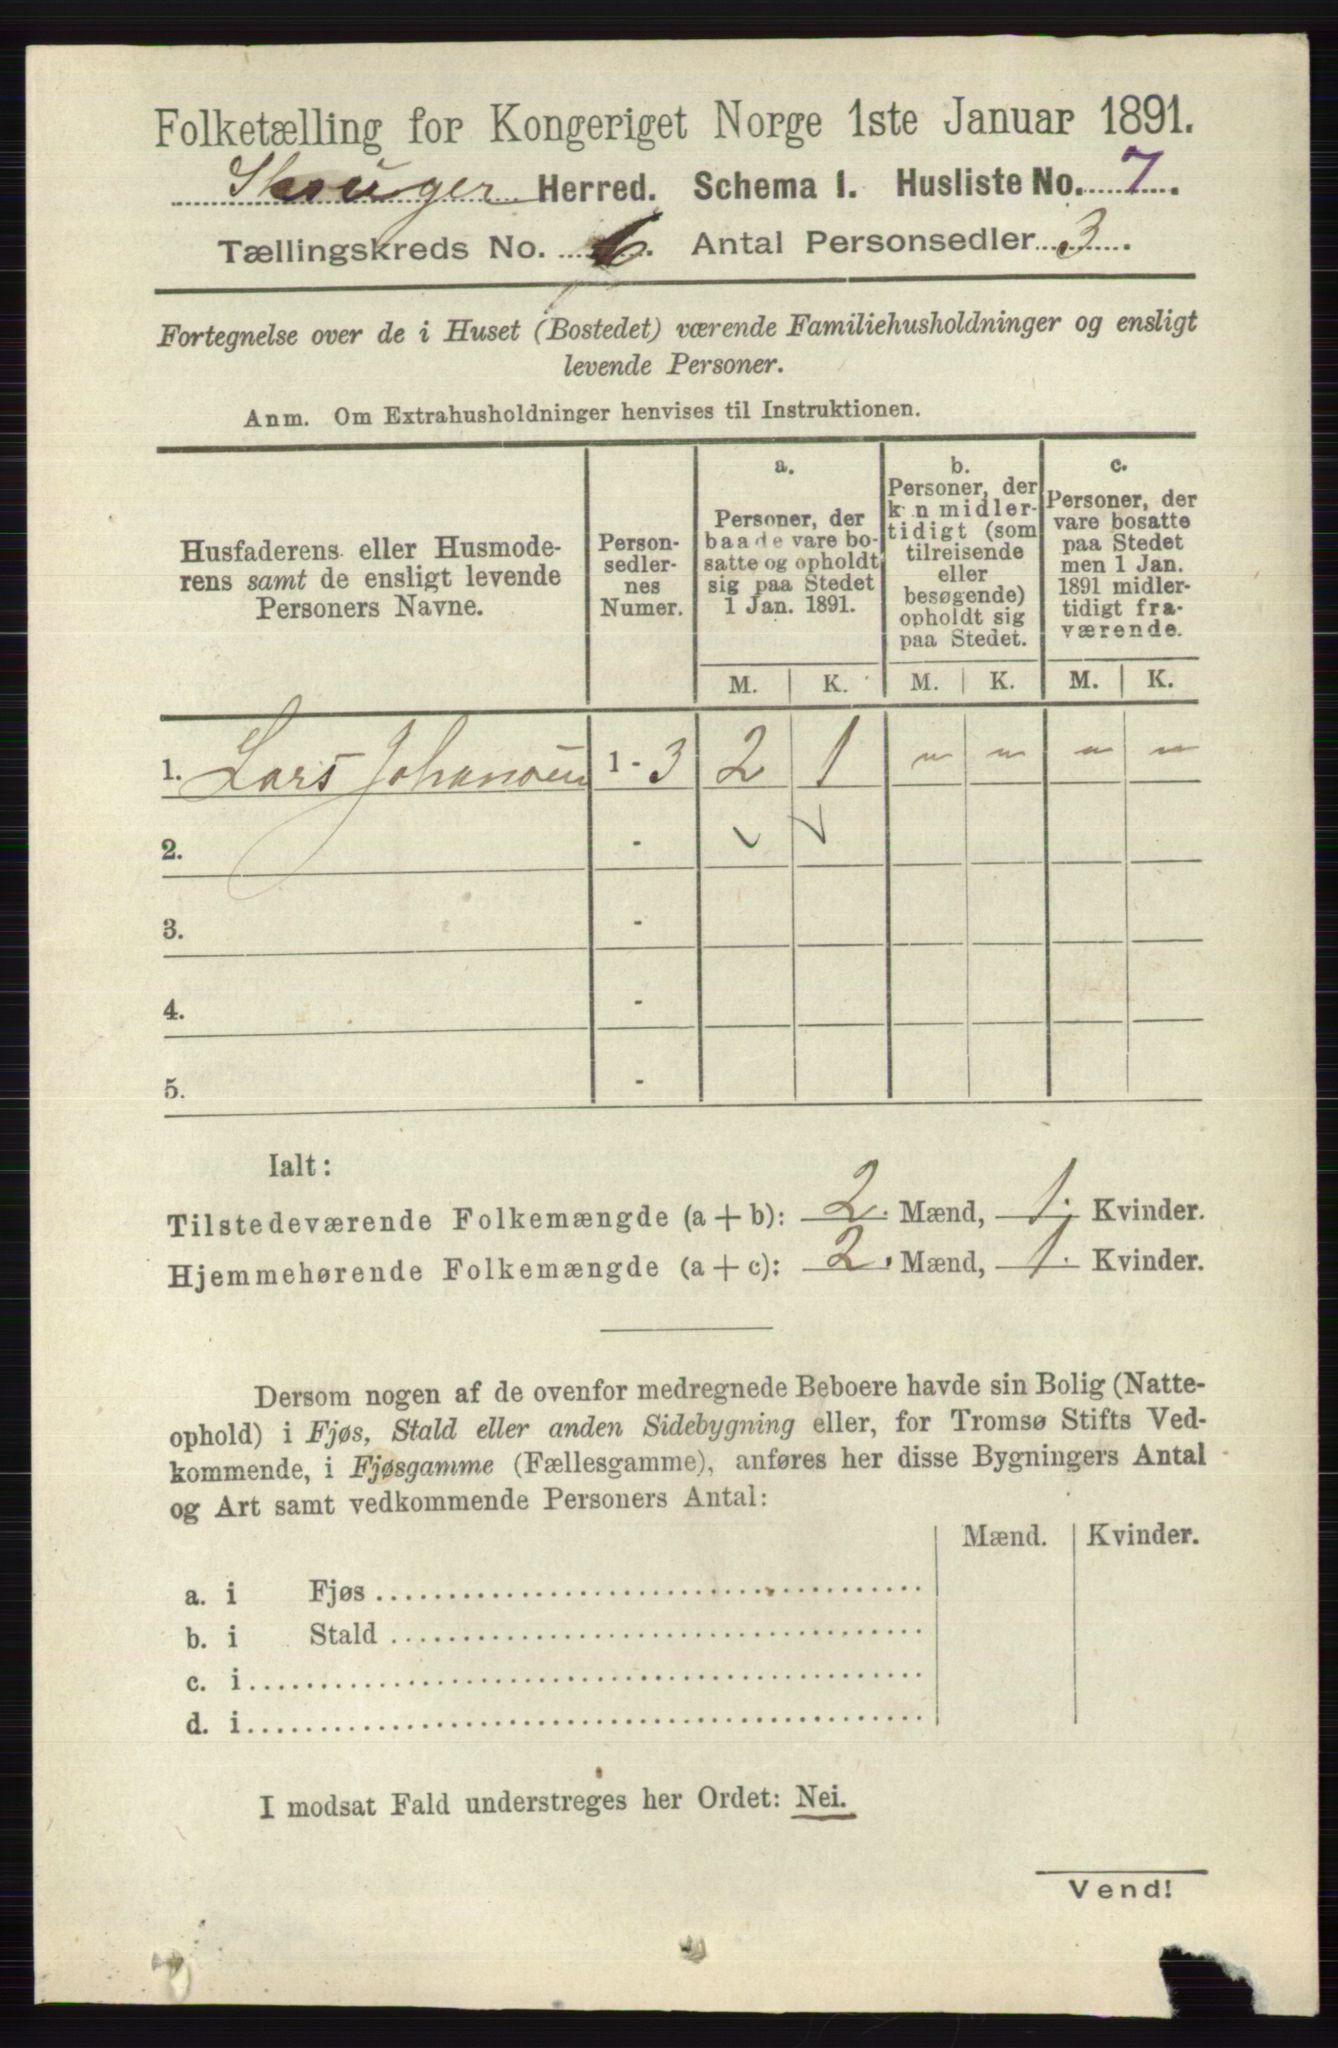 Folketælling for Kongeriget Norge 1ste Januar 1891.
Skouger Herred. Schema 1. Husliste No. 7.
Tællingskreds No. 6. Antal Personsedler 3.
Fortegnelse over de i Huset (Bostedet) værende Familiehusholdninger og ensligt
levende Personer.
Anm. Om Extrahusholdninger henvises til Instruktionen.
Husfaderens eller Husmode-
rens samt de ensligt levende
Personers Navne.
Person-
sedler-
nes
Numer.
a.
Personer, der
baade vare bo-
satte og opholdt
sig paa Stedet
1 Jan. 1891.
b.
Personer, der
kun midler-
tidigt (som
tilreisende
eller
besøgende)
opholdt sig
paa Stedet.
c.
Personer, der
vare bosatte
paa Stedet
men 1 Jan.
1891 midler-
tidigt fra-
værende.
M. K. M. K. M. K.
1. Lars Johansen 1 - 3 2 1 " " " "
2. -
3. -
4. -
5. -
Ialt:
Tilstedeværende Folkemængde (a + b): 2. Mænd, 1. Kvinder.
Hjemmehørende Folkemængde (a + c): 2. Mænd, 1. Kvinder.
Dersom nogen af de ovenfor medregnede Beboere havde sin Bolig (Natte-
ophold) i Fjøs, Stald eller anden Sidebygning eller, for Tromsø Stifts Ved-
kommende, i Fjøsgamme (Fællesgamme), anføres her disse Bygningers Antal
og Art samt vedkommende Personers Antal:
Mænd. Kvinder.
a. i Fjøs
b. i Stald
c. i
d. i
I modsat Fald understreges her Ordet: Nei.
Vend!